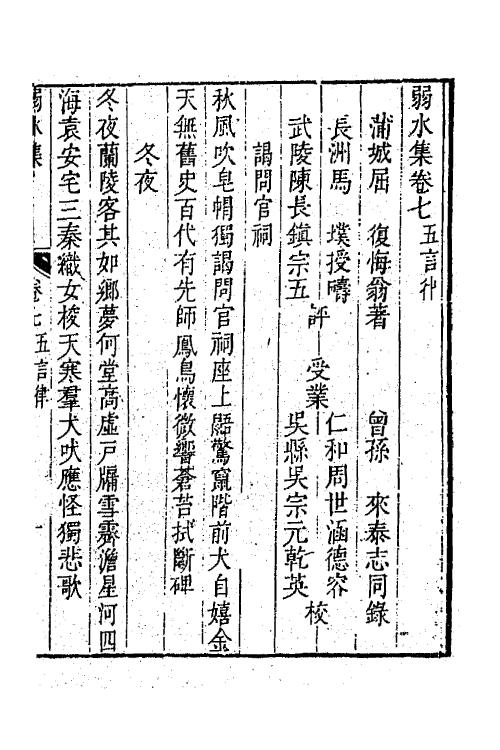 弱水集卷七 五言律
蒲城屈 復悔翁著 曾孫 來泰志同錄
長洲馬 墣授疇 仁和周世涵德容
評 受業 校
武陵陳長鎮宗五 吳縣吳宗元乾英
謁問官祠
秋風吹皂帽獨謁問官祠座上鼯驚竄階前犬自嬉金
天無舊史百代有先師鳳鳥懷微響蒼苔拭斷碑
冬夜
冬夜蘭陵客其如鄉夢何堂高虛戶牖雪霽澹星河四
海袁安宅三秦織女梭天寒羣犬吠應怪獨悲歌
弱水集 卷七 五言律 一